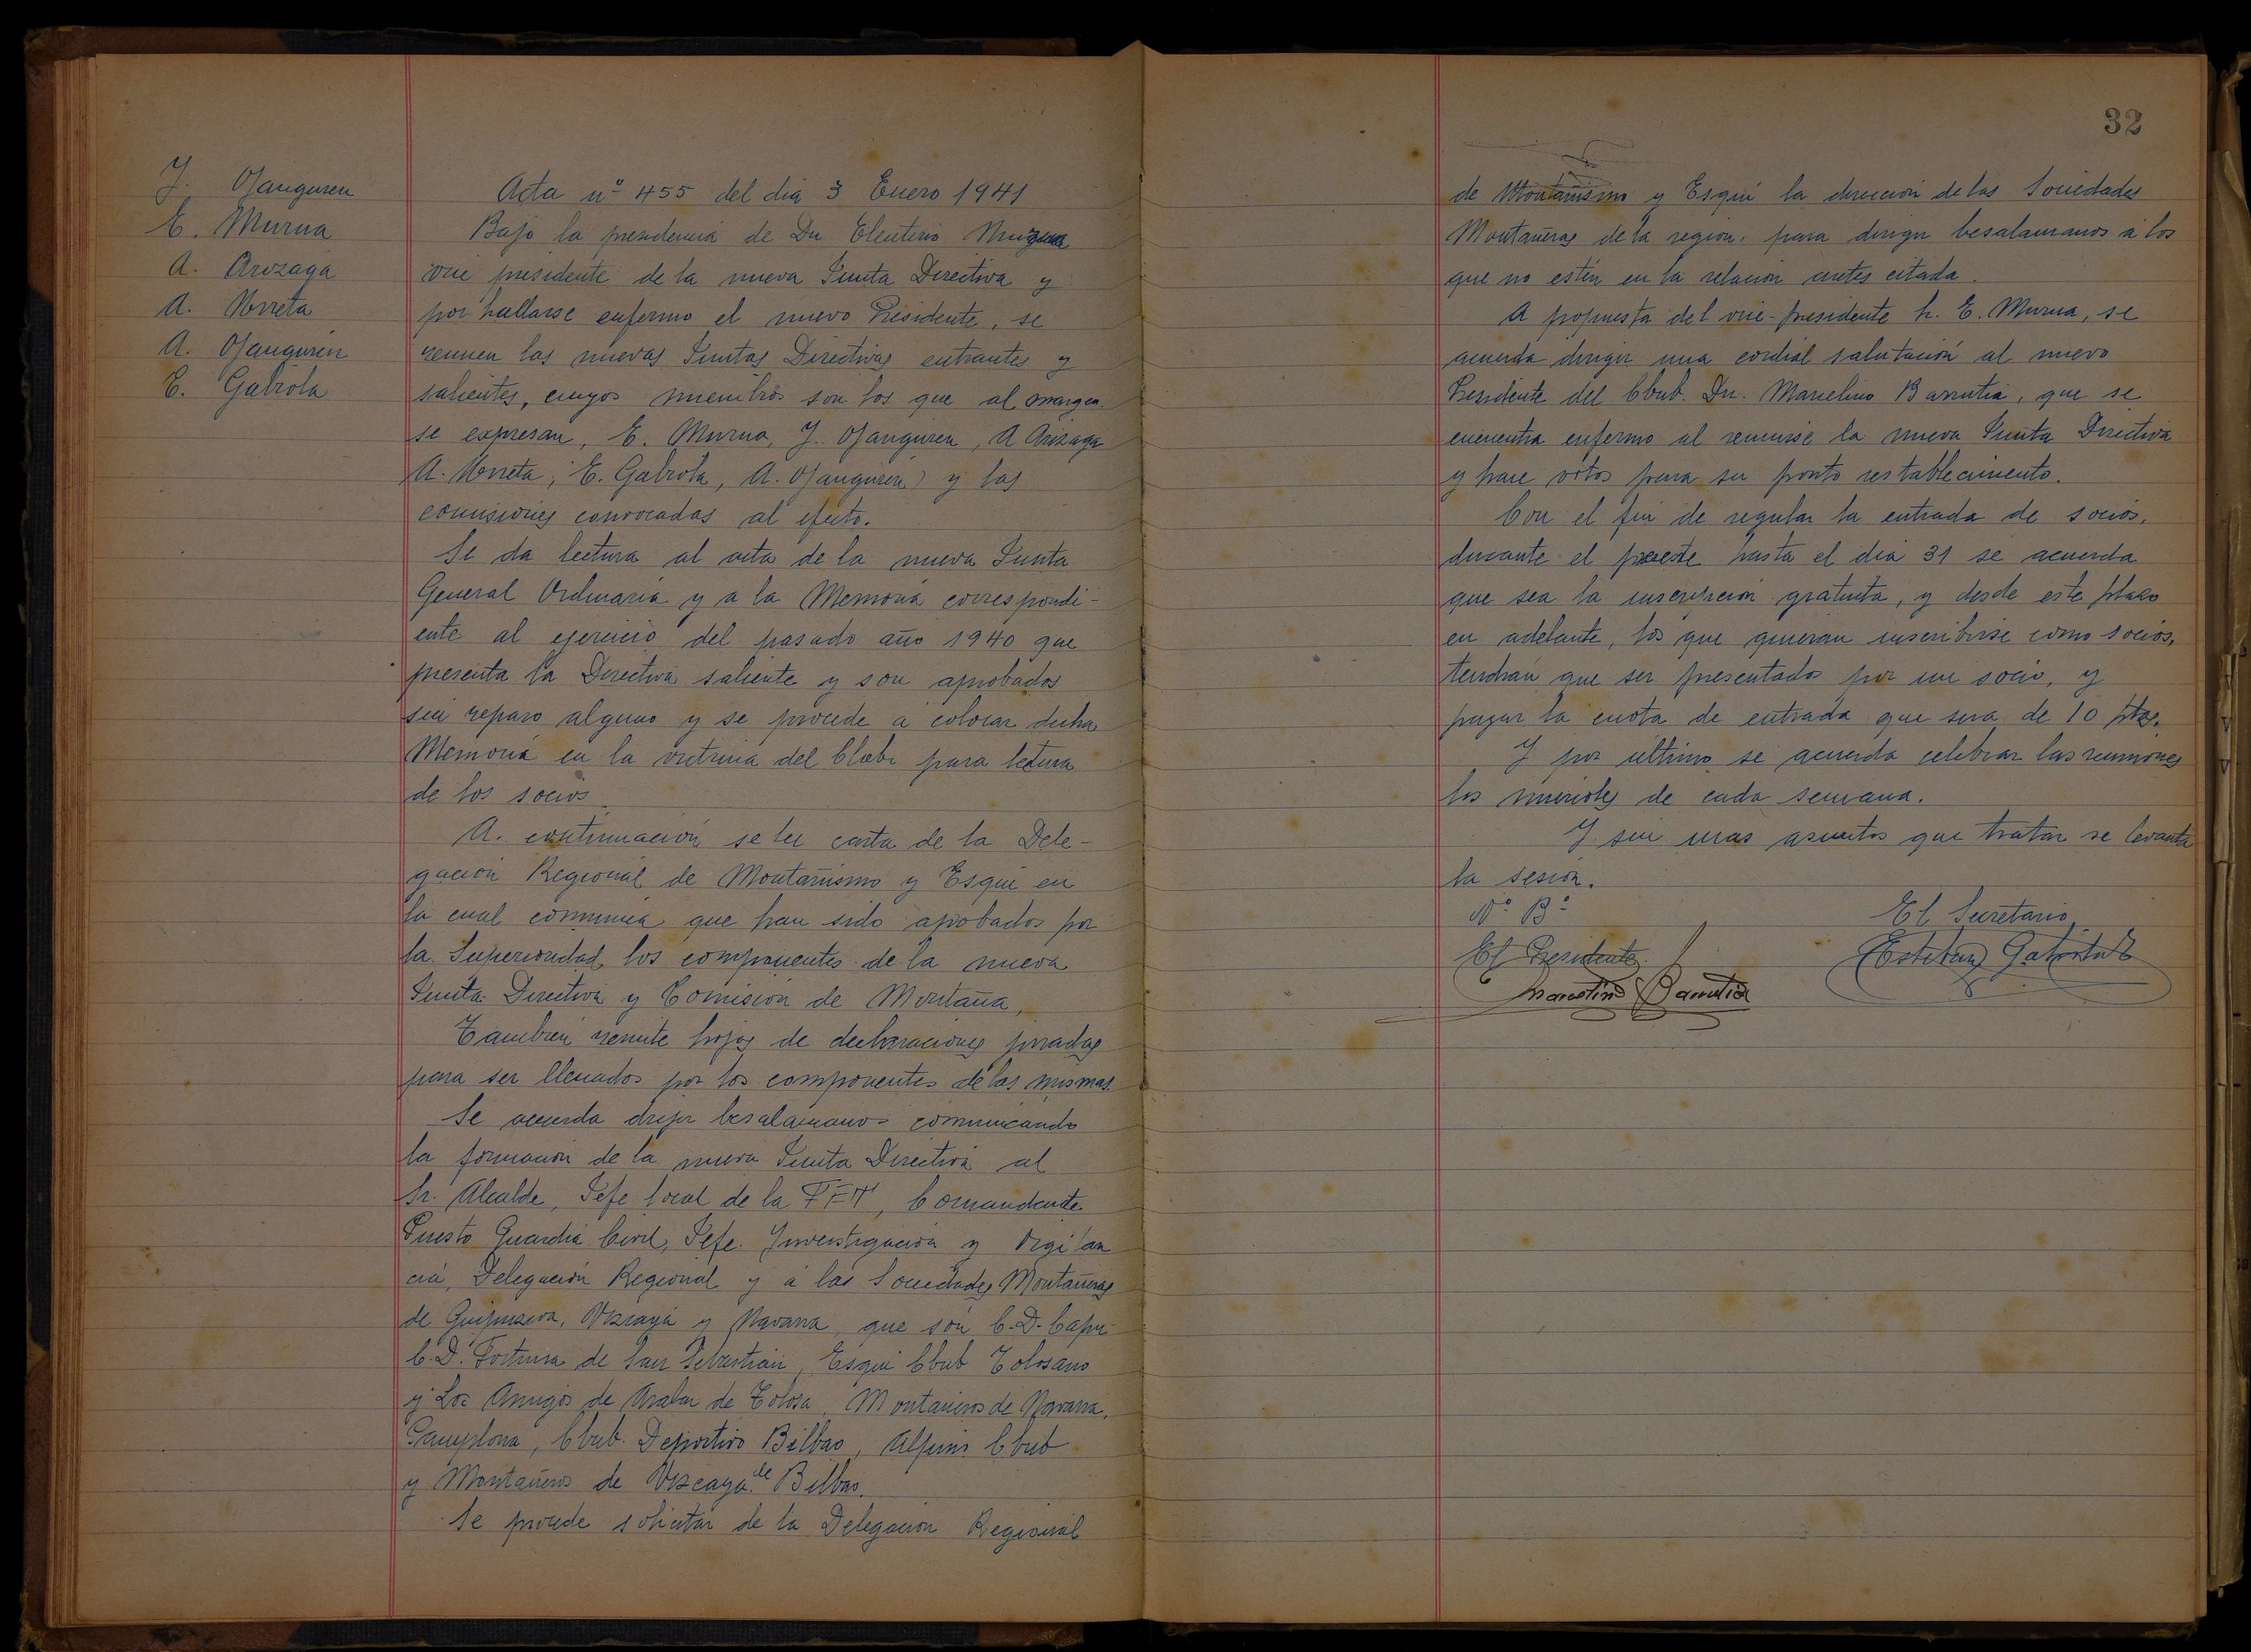 J. Ojanguren
E. Murua
A. Arozaga
A. Urreta
A. Ojanguren
E. Gabiola
Acta nº 455 del dia 3 Enero 1941
Bajo la presidencia de Dn Eleuterio
vice presidente de la nueva Junta Directiva y
por hallarse enfermo el nuevo Presidente, se
reunen las nuevas Juntas Directivas entrantes y
salientes, cuyos miembros son los que al margen
se expresan, E. Murua, J. Ojanguren, A Arizaga
A. Urreta, E. Gabiola, A. Ojanguren) y las
comisiones convocadas al efecto.
Se da lectura al acta de la nueva Junta
General Ordinaria y a la Memoria correspondi-
ente al ejercicio del pasado año 1940 que
presenta la Directiva saliente y son aprobados
sin reparo alguno y se procede a colocar dicha
Memoria en la vitrina del Club para lectura
de los socios.
A. continuación se lee carta de la Dele-
gación Regional de Montañismo y Esqui en
la cual comunica que han sido aprobados por
la Superioridad los componentes de la nueva
Junta Directiva y Comisión de Montaña,
Tambien remite hojas de declaraciones juradas
para ser llenados por los componentes de las mismas.
Se acuerda dirijir besalamanos comunicando
la formación de la nueva Junta Directiva al
Sr. Alcalde, Jefe local de la FET, Comandante
Puesto Guardia Civil, Jefe. Investigación y Vigilan
cia, Delegación Regional y a las Sociedades Montañeras
de Guipuzcoa, Vizcaya y Navarra, que son C.D. Capu-
C.D. Fortuna de San Sebastian, Esqui Club Tolosano
y Los Amigos de Aralar de Tolosa, Montañeros de Navarra,
Pamplona, Club Deportivo Bilbao, Alpino Club
y Montañeros de Vizcaya de Bilbao.
Se procede solicitar de la Delegación Regional
32
de Montañismo y Esqui la dirección de las Sociedades
Montañeras de la región, para dirigir besalamanos a los
que no estén en la relación antes citada.
A propuesta del vice-presidente Sr. E. Murua, se
acuerda dirigir una cordial salutación al nuevo
Presidente del Club. Dn. Marcelino Barrutia, que se
encuentra enfermo al reunirse la nueva Junta Directiva
y hace votos para su pronto restablecimiento.
Con el fin de regular la entrada de socios,
durante el hasta el dia 31 se acuerda
que sea la inscripción gratuita, y desde este plazo
en adelante, los que quieran inscribirse como socios,
tendrán que ser presentados por un socio, y
pagar la cuota de entrada que sera de 10 ptas.
Y por último se acuerda celebrar las reuniones
los miercoles de cada semana.
Y sin mas asuntos que tratar se levanta
la sesión.
Vº Bº
El Secretario
El Presidente
Esteban Gabiola
Marcelino Barrutia